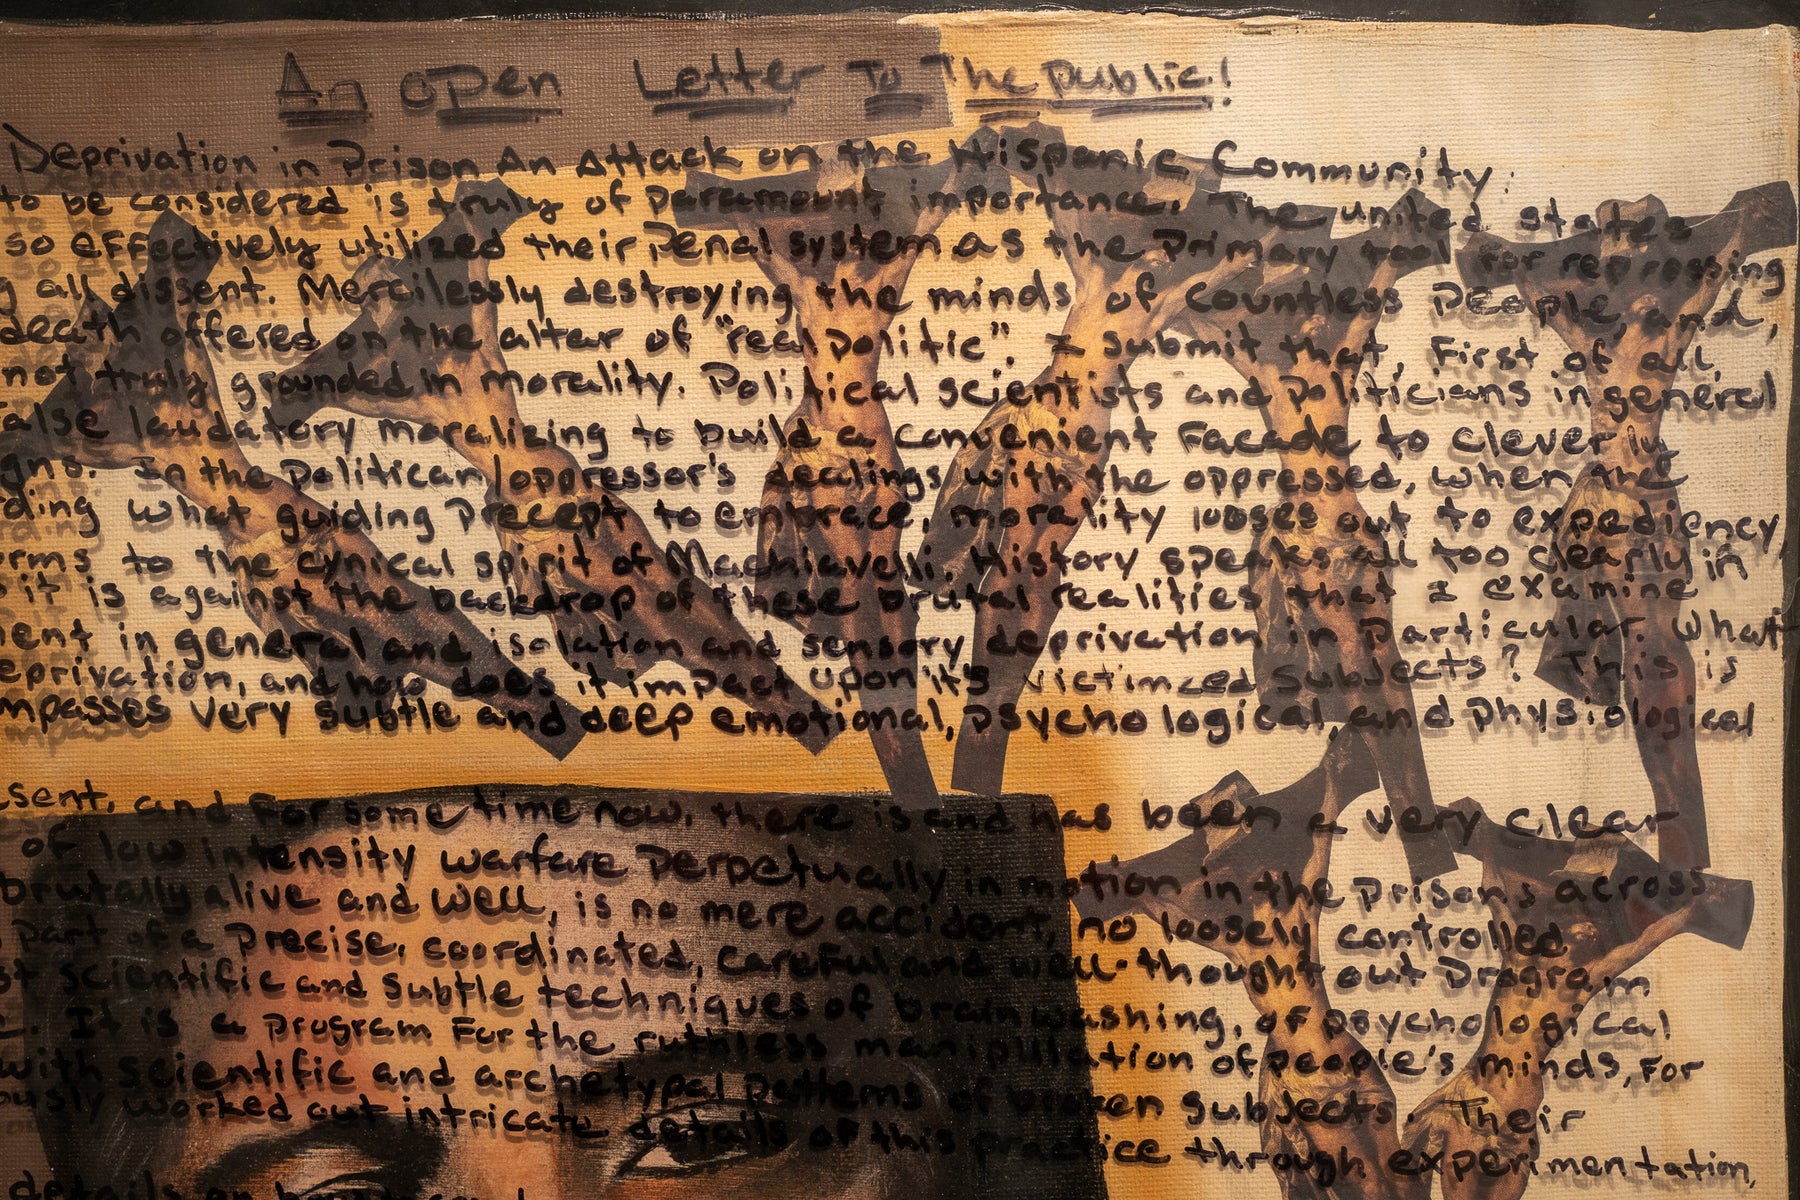 An open Letter To The public!
Deprivation in Prison An Attack on the Hispanic Community:
to be considered is truly of paramount importance. The united states
so effectively utilized their penal system as the primary tool for repressing
all dissent. Mercilessly destroying the minds of countless people, and,
death offered on the alter of "real politic". I submit that, First of all
not truly grounded in morality. Political scientists and politicians in general
false laudatory moralizing to build a convenient facade to cleverly
gns. In the politican/oppressor's dealings with the oppressed, when the
ding what guiding precept to embrace, morality looses out to expediency,
rms to the cynical spirit of Machiavelli. History speaks all too clearly in
it is against the backdrop of these brutal realities that I examine
ent in general and isolation and sensory deprivation in particular. What
eprivation, and how does it impact upon it's victimzed subjects? This is
mpasses very subtle and deep emotional, psychological, and physiological
sent, and for some time now, there is and has been a very clear
of low intensity warfare perpetually in motion in the prisons across
brutally alive and well, is no mere accident, no loosely controlled
part of a precise, coordinated, careful and well-thought out program
st scientific and subtle techniques of brainwashing, of psychological
It is a program for the ruthless manipulation of people's minds, for
with scientific and archetypal patterns of broken subjects. Their
ously worked out intricate details of this practice through experimentation,
details